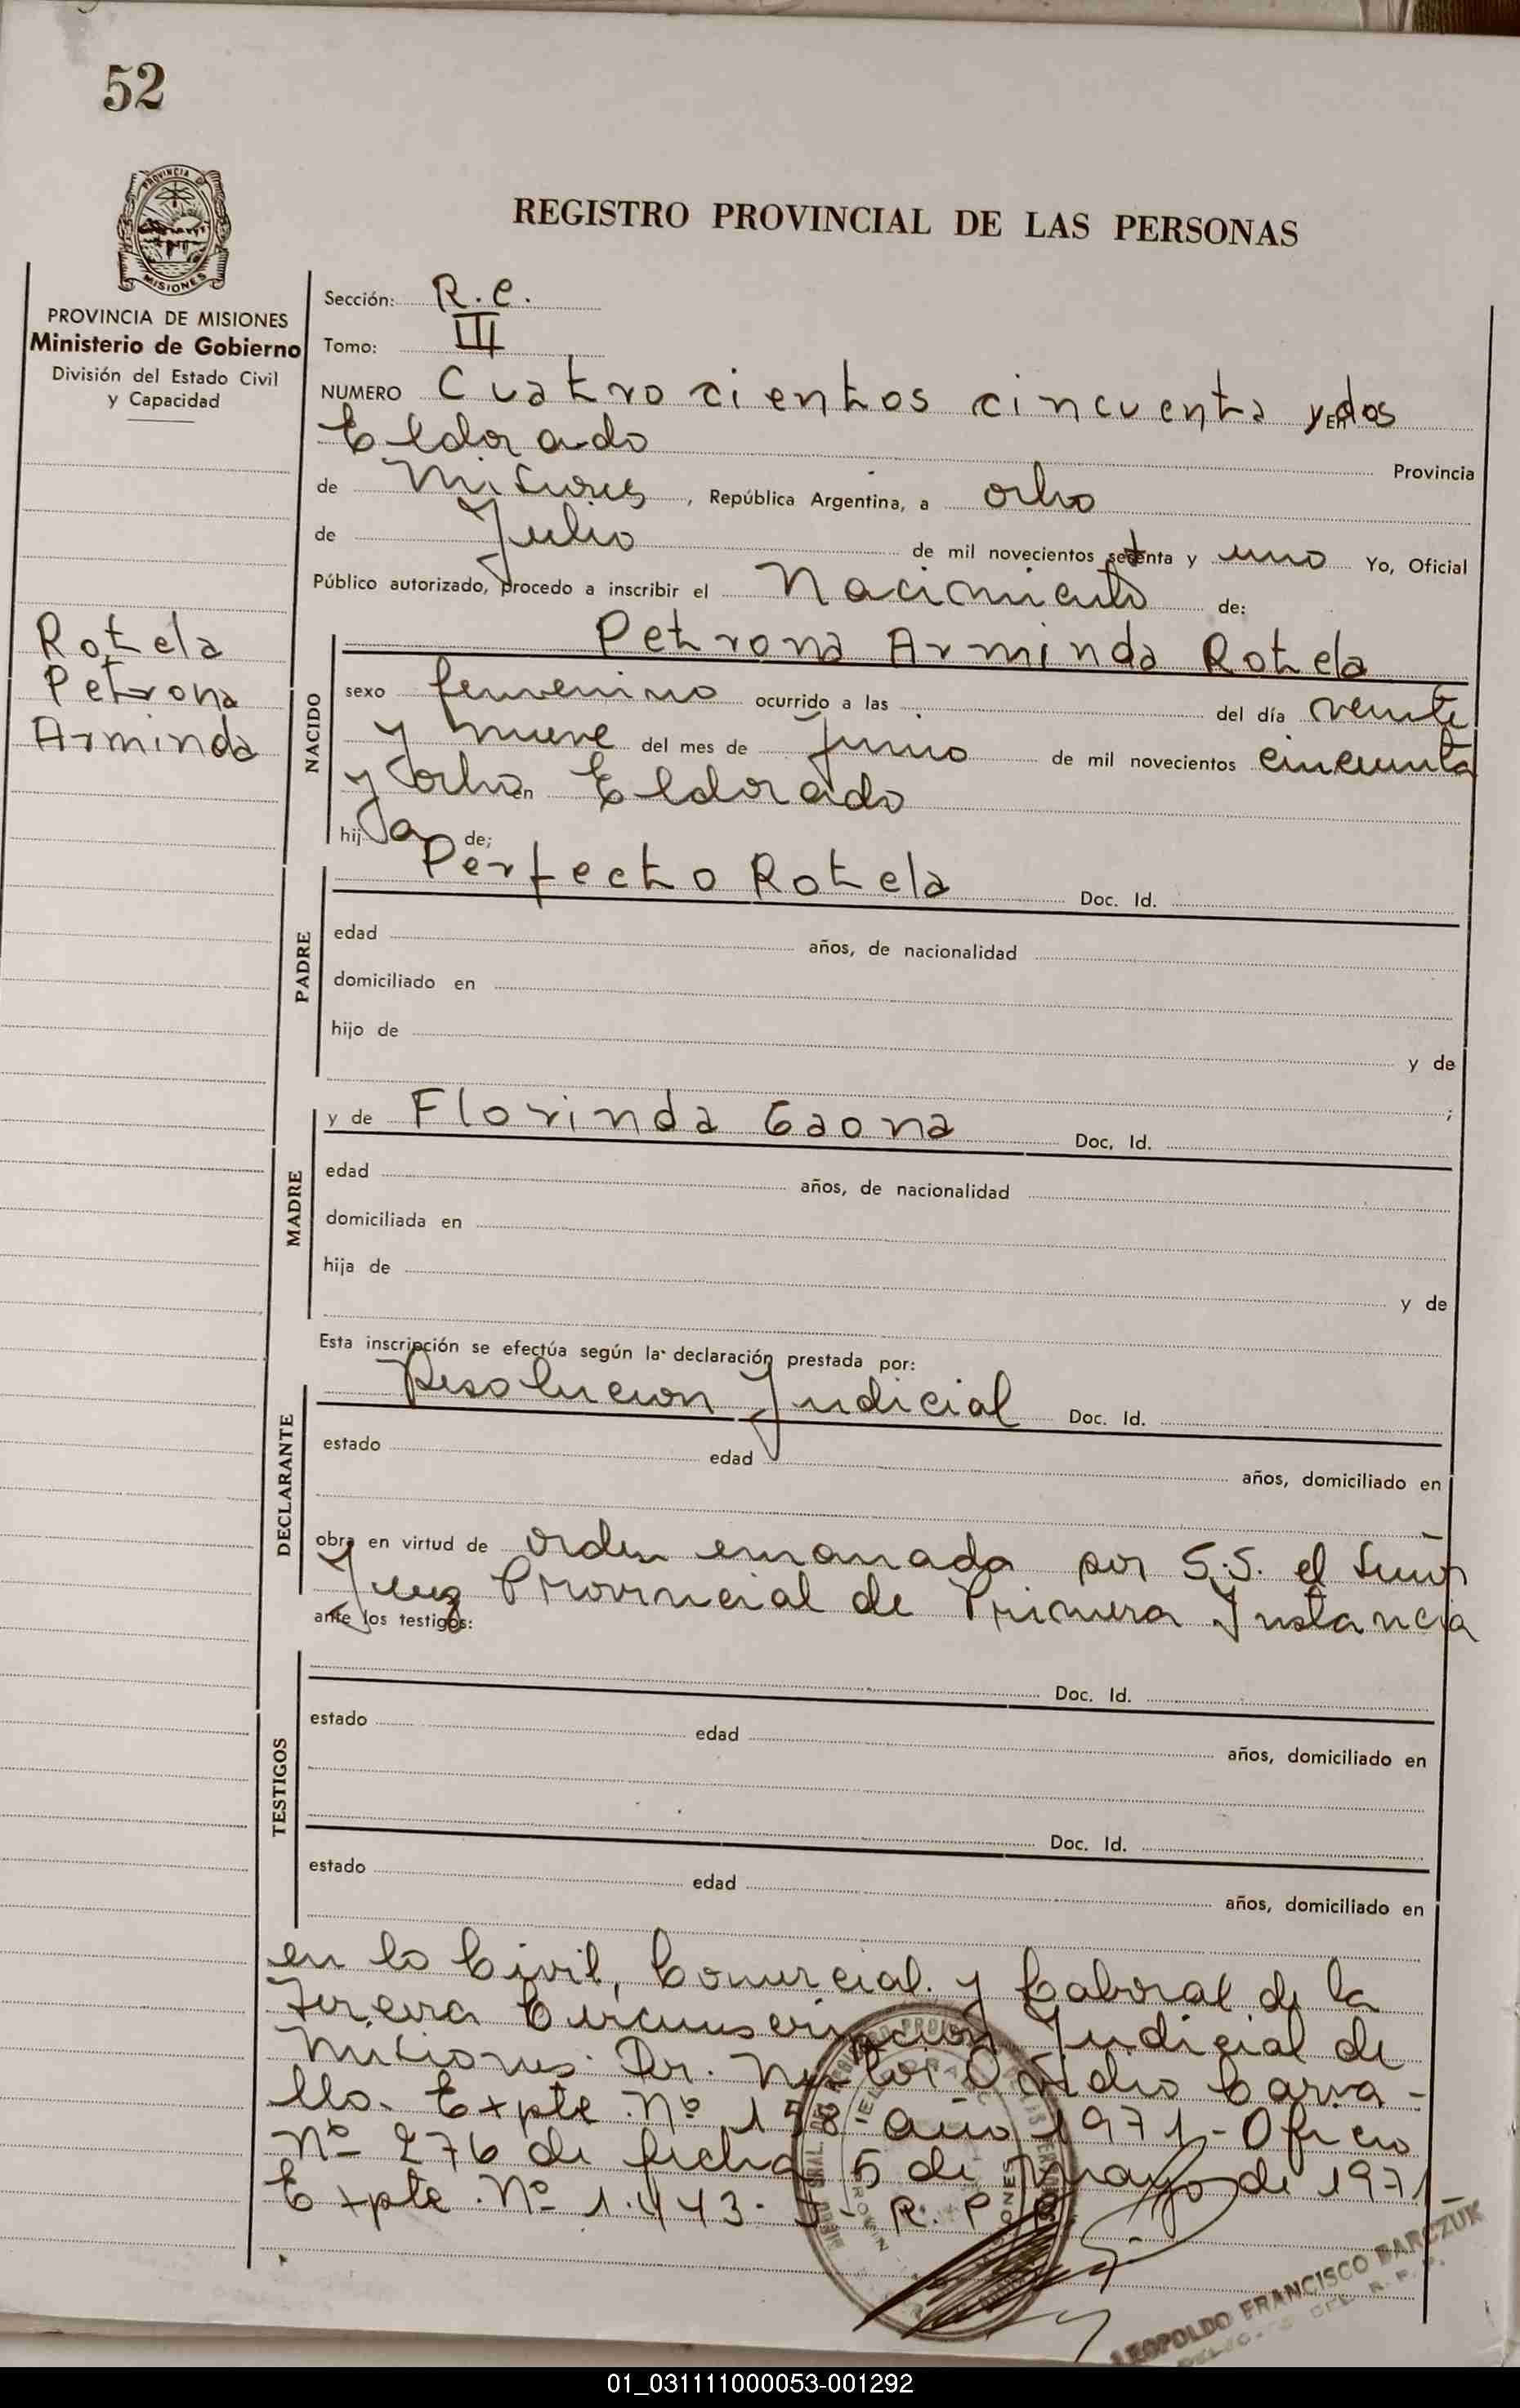 52
PROVINCIA DE
MISIONES
REGISTRO PROVINCIAL DE LAS PERSONAS
PROVINCIA DE MISIONES
Ministerio de Gobierno
División del Estado Civil
y Capacidad
Rotela
Petrona
Arminda
Sección: R.C.
Tomo: III
NUMERO Cuatrocientos cincuenta y dos EN
Eldorado Provincia
de Misiones, República Argentina, a ocho
de Julio de mil novecientos setenta y uno Yo, Oficial
Público autorizado, procedo a inscribir el Nacimiento de:
NACIDO
Petrona Arminda Rotela
sexo femenino ocurrido a las del día veinte
y nueve del mes de Junio de mil novecientos cincuenta
y ocho en Eldorado
hija de;
PADRE
Perfecto Rotela Doc. Id.
edad años, de nacionalidad
domiciliado en
hijo de y de
;
MADRE
y de Florinda Gaona Doc. Id.
edad años, de nacionalidad
domiciliada en
hija de y de
Esta inscripción se efectúa según la declaración prestada por:
DECLARANTE
Resolucion Judicial Doc. Id.
estado edad años, domiciliado en
obra en virtud de orden emanada por S.S. el Señor
Juez Provincial de Primera Instancia
ante los testigos:
TESTIGOS
Doc. Id.
estado edad años, domiciliado en
Doc. Id.
estado edad años, domiciliado en
en lo Civil, Comercial y Laboral de la
Tercera Circunscripcion Judicial de
Misiones. Dr. Ovidio Carva-
llo. Expte. Nº 158 año 1971 - Oficio
Nº 276 de fecha 5 de mayo de 1971 -
Expte. Nº 1.443. J- R. P.
LEOPOLDO FRANCISCO BARCZUK
01_031111000053-001292